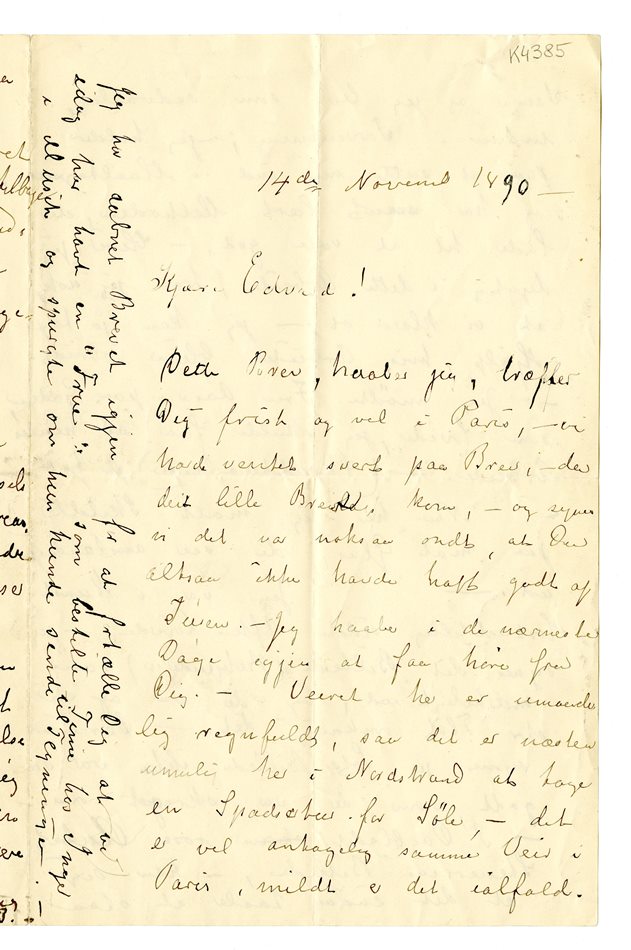 K4385
14de Novemb 1890 —
Kjære Edvard!
Dette Brev, haaber jeg, træffer
Dig frisk og vel i Paris, – vi
havde ventet svert paa Brev; – da
deit lille Brev, kom, – og synes
vi det var noksaa ondt, at Du
altsaa ikke havde haft godt af
Turen. – Jeg haaber i de nærmeste
Dage igjen at faa høre fra
Dig. – Veiret her er umaade
lig regnfuldt, saa det er næsten
umulig her i Nordstrand at tage
en Spadsertur for Søle, – det
er vel antagelig samme Veir i
Paris, mildt er det ialfald.
Jeg har aabnet Brevet igjen for at fortælle Dig at vi
idag har havt en "Frue" som bestilte Timer hos Inger
i Musik og spurgte om hun kunde sende til Tegninger. –